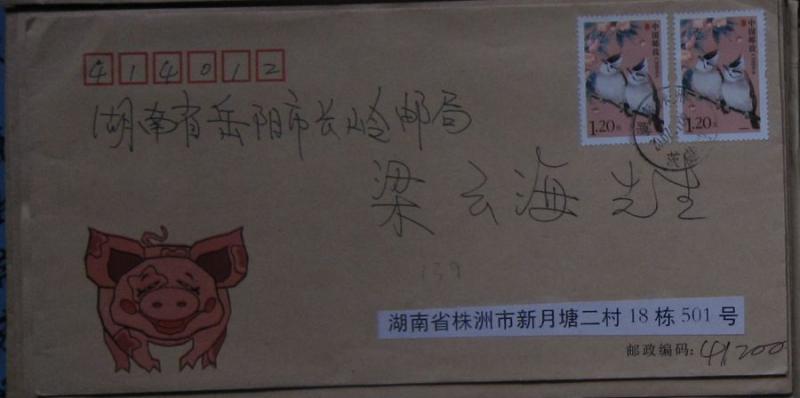 414012
中国邮政
1.20元
中国邮政
1.20元
湖南省岳阳市长岭邮局
梁云海先生
139
湖南省株洲市新月塘二村 18 栋 501 号
邮政编码: 412000